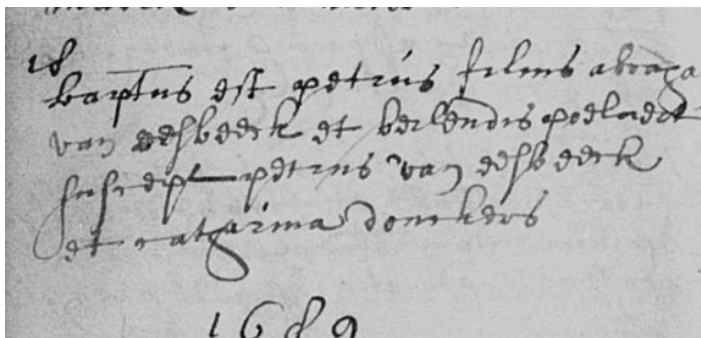 18
baptus est petrus filius abraha
van eesbeeck et berlendis poelaert
suscept petrus van eesbeeck
et catharina donckers
1689